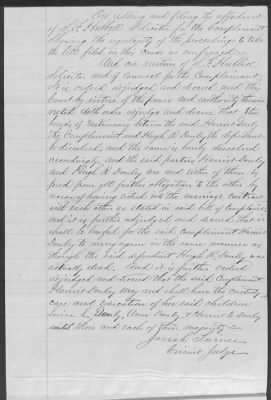 On reading and filing the affidavit
of S. F. Hubbell Solicitor for the Complainant
Showing the regularity of the proceedings to take
the bill filed in this cause as confessed.
And on motion of S. F. Hubbell
Solicitor and of Counsel for the Complainant
It is ordered adjudged and decreed and this
Court by virtue of the power and authority therein
vested doth order adjudge and decree that the
marriage between the said Harriet Donly
the Complainant and Hugh R. Donly the defendant
be dissolved, and the same is hereby dissolved
accordingly, and the said parties Harriet Donly
and Hugh R Donly are and either of them is
freed from all further obligation to the other by
reason of having entered into the marriage contract
with each other as stated in said bill of complaint
and it is further adjudged and decreed that it
shall be lawful for the said complainant Harriet
Donly to marry again in the same manner as
though the said defendant Hugh R. Donly was
actually dead. And it is further ordered
adjudged and decreed that the said Complainant
Harriet Donly may and shall have the custody
care and education of her said children
L. Donly, Donly, & Harriet E. Donly
until their and each of their majority
Josiah Turner
Circuit Judge